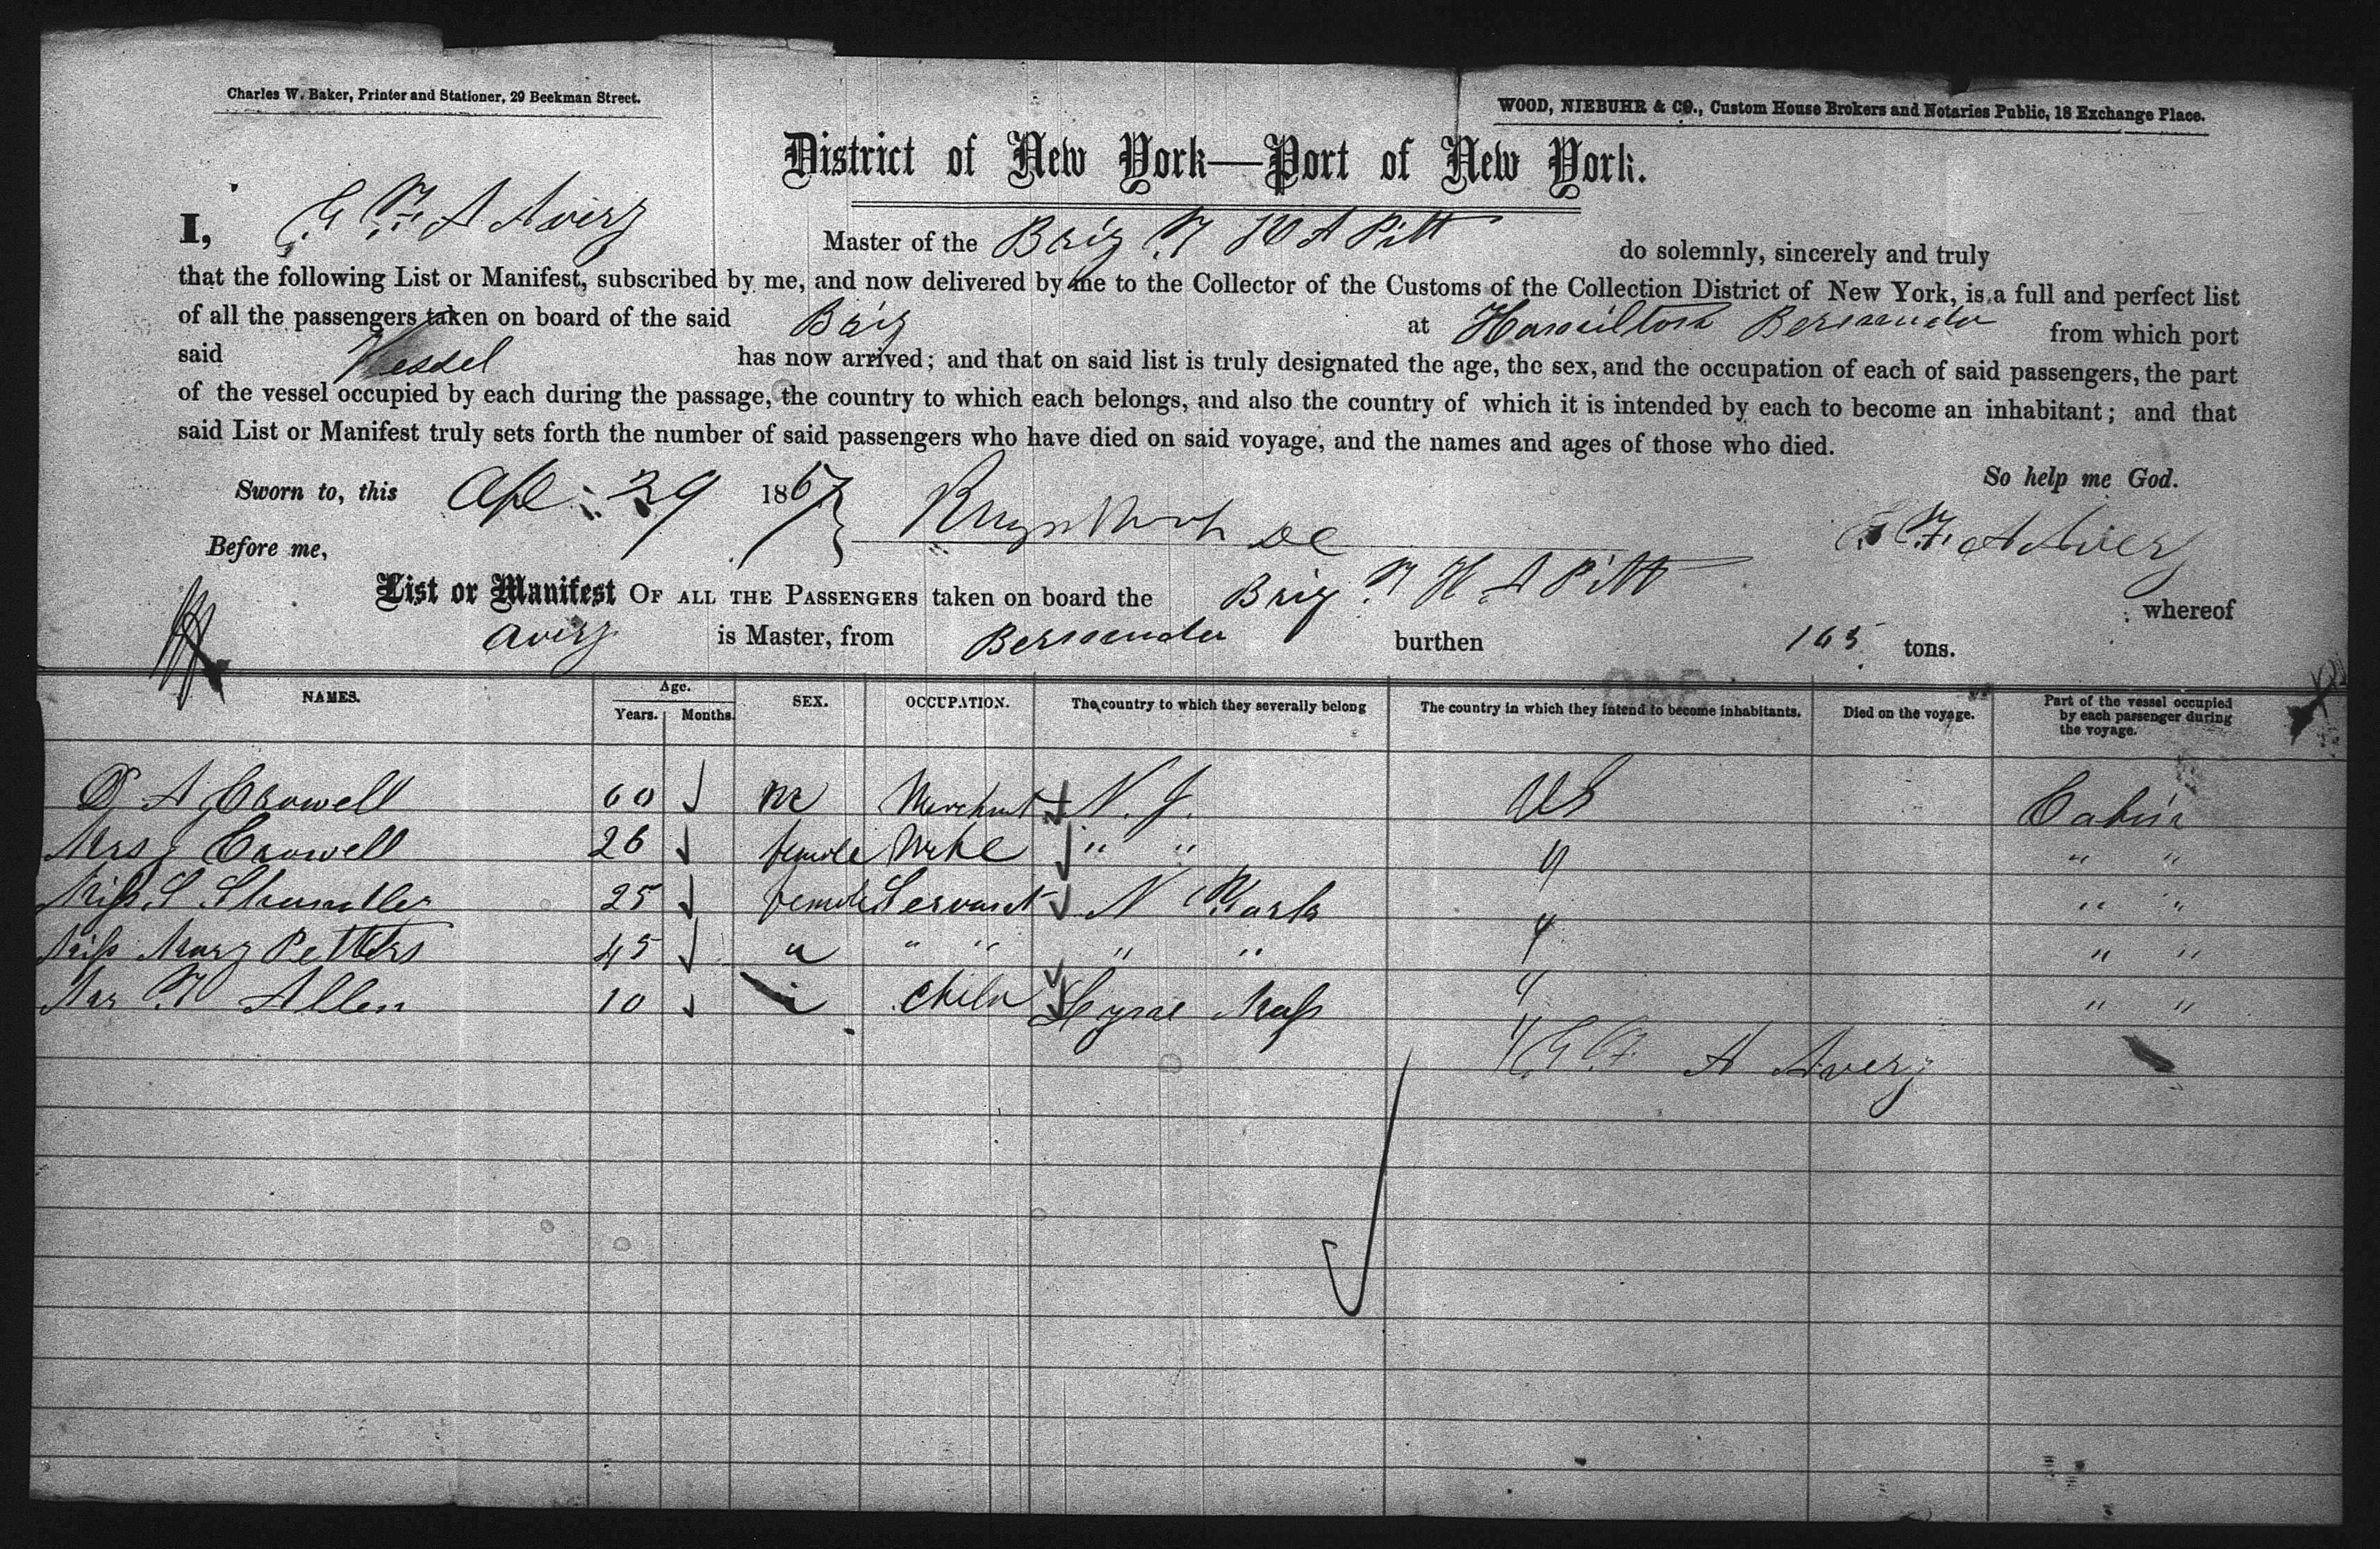 Charles W. Baker, Printer and Stationer, 29 Beekman Street.
WOOD, NIEBUHR & CO., Custom House Brokers and Notaries Public, 18 Exchange Place.
District of New York—Port of New York.
I, A Avery Master of the Brig A Pitt do solemnly, sincerely and truly
that the following List or Manifest, subscribed by me, and now delivered by me to the Collector of the Customs of the Collection District of New York, is a full and perfect list
of all the passengers taken on board of the said Brig at Hamilton Bermuda from which port
said Vessel has now arrived; and that on said list is truly designated the age, the sex, and the occupation of each of said passengers, the part
of the vessel occupied by each during the passage, the country to which each belongs, and also the country of which it is intended by each to become an inhabitant; and that
said List or Manifest truly sets forth the number of said passengers who have died on said voyage, and the names and ages of those who died.
So help me God.
Sworn to, this Ap 29 1867
Before me, A Avery
List or Manifest OF ALL THE PASSENGERS taken on board the Brig H A Pitt whereof
Avery is Master, from Bermuda burthen 165 tons.
NAMES. Age. Years. Months. SEX. OCCUPATION. The country to which they severally belong The country in which they intend to become inhabitants. Died on the voyage. Part of the vessel occupied by each passenger during the voyage.
A Crowell 60 m Merchant N. J. US Cabin
Mrs J Crowell 26 female Wife " " " " "
Miss S 25 female Servant N York " " "
Miss Mary Petters 45 " " " " " " " "
Allen 10 " Child Mass " " "
A Avery